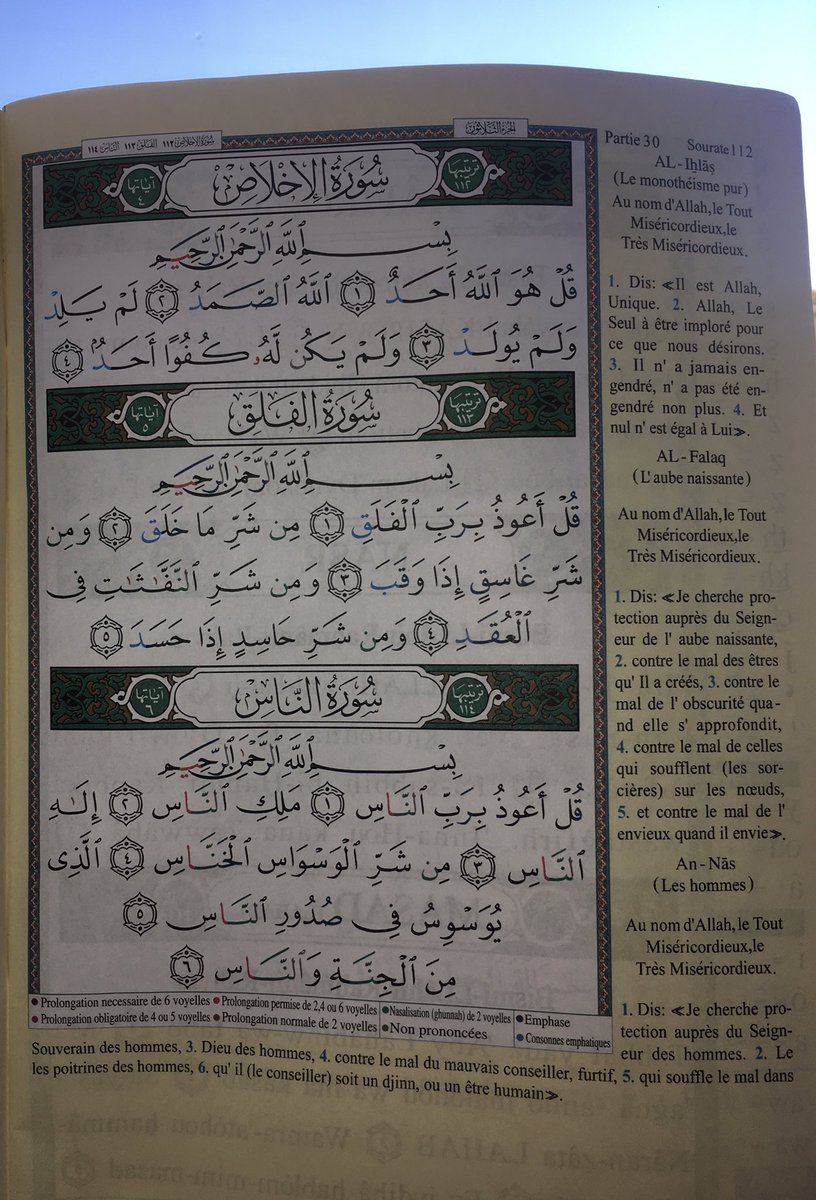 سورة الإخلاص ١١٢ الفلق ١١٣ الناس ١١٤
الجزء الثلاثون
ترتيبها ١١٢
سُورَةُ الإِخْلَاصِ
آياتها ٤
بِسْمِ ٱللَّهِ ٱلرَّحْمَٰنِ ٱلرَّحِيمِ
قُلْ هُوَ ٱللَّهُ أَحَدٌ ١ ٱللَّهُ ٱلصَّمَدُ ٢ لَمْ يَلِدْ
وَلَمْ يُولَدْ ٣ وَلَمْ يَكُن لَّهُۥ كُفُوًا أَحَدٌۢ ٤
ترتيبها ١١٣
سُورَةُ الفَلَقِ
آياتها ٥
بِسْمِ ٱللَّهِ ٱلرَّحْمَٰنِ ٱلرَّحِيمِ
قُلْ أَعُوذُ بِرَبِّ ٱلْفَلَقِ ١ مِن شَرِّ مَا خَلَقَ ٢ وَمِن
شَرِّ غَاسِقٍ إِذَا وَقَبَ ٣ وَمِن شَرِّ ٱلنَّفَّٰثَٰتِ فِى
ٱلْعُقَدِ ٤ وَمِن شَرِّ حَاسِدٍ إِذَا حَسَدَ ٥
ترتيبها ١١٤
سُورَةُ النَّاسِ
آياتها ٦
بِسْمِ ٱللَّهِ ٱلرَّحْمَٰنِ ٱلرَّحِيمِ
قُلْ أَعُوذُ بِرَبِّ ٱلنَّاسِ ١ مَلِكِ ٱلنَّاسِ ٢ إِلَٰهِ
ٱلنَّاسِ ٣ مِن شَرِّ ٱلْوَسْوَاسِ ٱلْخَنَّاسِ ٤ ٱلَّذِى
يُوَسْوِسُ فِى صُدُورِ ٱلنَّاسِ ٥
مِنَ ٱلْجِنَّةِ وَٱلنَّاسِ ٦
Prolongation necessaire de 6 voyelles Prolongation permise de 2,4 ou 6 voyelles Nasalisation (ghunnah) de 2 voyelles Emphase
Prolongation obligatoire de 4 ou 5 voyelles Prolongation normale de 2 voyelles Non prononcées Consonnes emphatiques
Partie 30 Sourate112
AL-Iḫlāṣ
(Le monothéisme pur)
Au nom d'Allah,le Tout
Miséricordieux,le
Très Miséricordieux.
1. Dis: ≪Il est Allah,
Unique. 2. Allah, Le
Seul à être imploré pour
ce que nous désirons.
3. Il n' a jamais en-
gendré, n' a pas été en-
gendré non plus. 4. Et
nul n' est égal à Lui≫.
AL-Falaq
(L'aube naissante)
Au nom d'Allah,le Tout
Miséricordieux,le
Très Miséricordieux.
1. Dis: ≪Je cherche pro-
tection auprès du Seign-
eur de l' aube naissante,
2. contre le mal des êtres
qu' Il a créés, 3. contre le
mal de l' obscurité qua-
nd elle s' approfondit,
4. contre le mal de celles
qui soufflent (les sor-
cières) sur les nœuds,
5. et contre le mal de l'
envieux quand il envie≫.
An-Nās
(Les hommes)
Au nom d'Allah,le Tout
Miséricordieux,le
Très Miséricordieux.
1. Dis: ≪Je cherche pro-
tection auprès du Seign-
eur des hommes. 2. Le
Souverain des hommes, 3. Dieu des hommes, 4. contre le mal du mauvais conseiller, furtif, 5. qui souffle le mal dans
les poitrines des hommes, 6. qu' il (le conseiller) soit un djinn, ou un être humain≫.